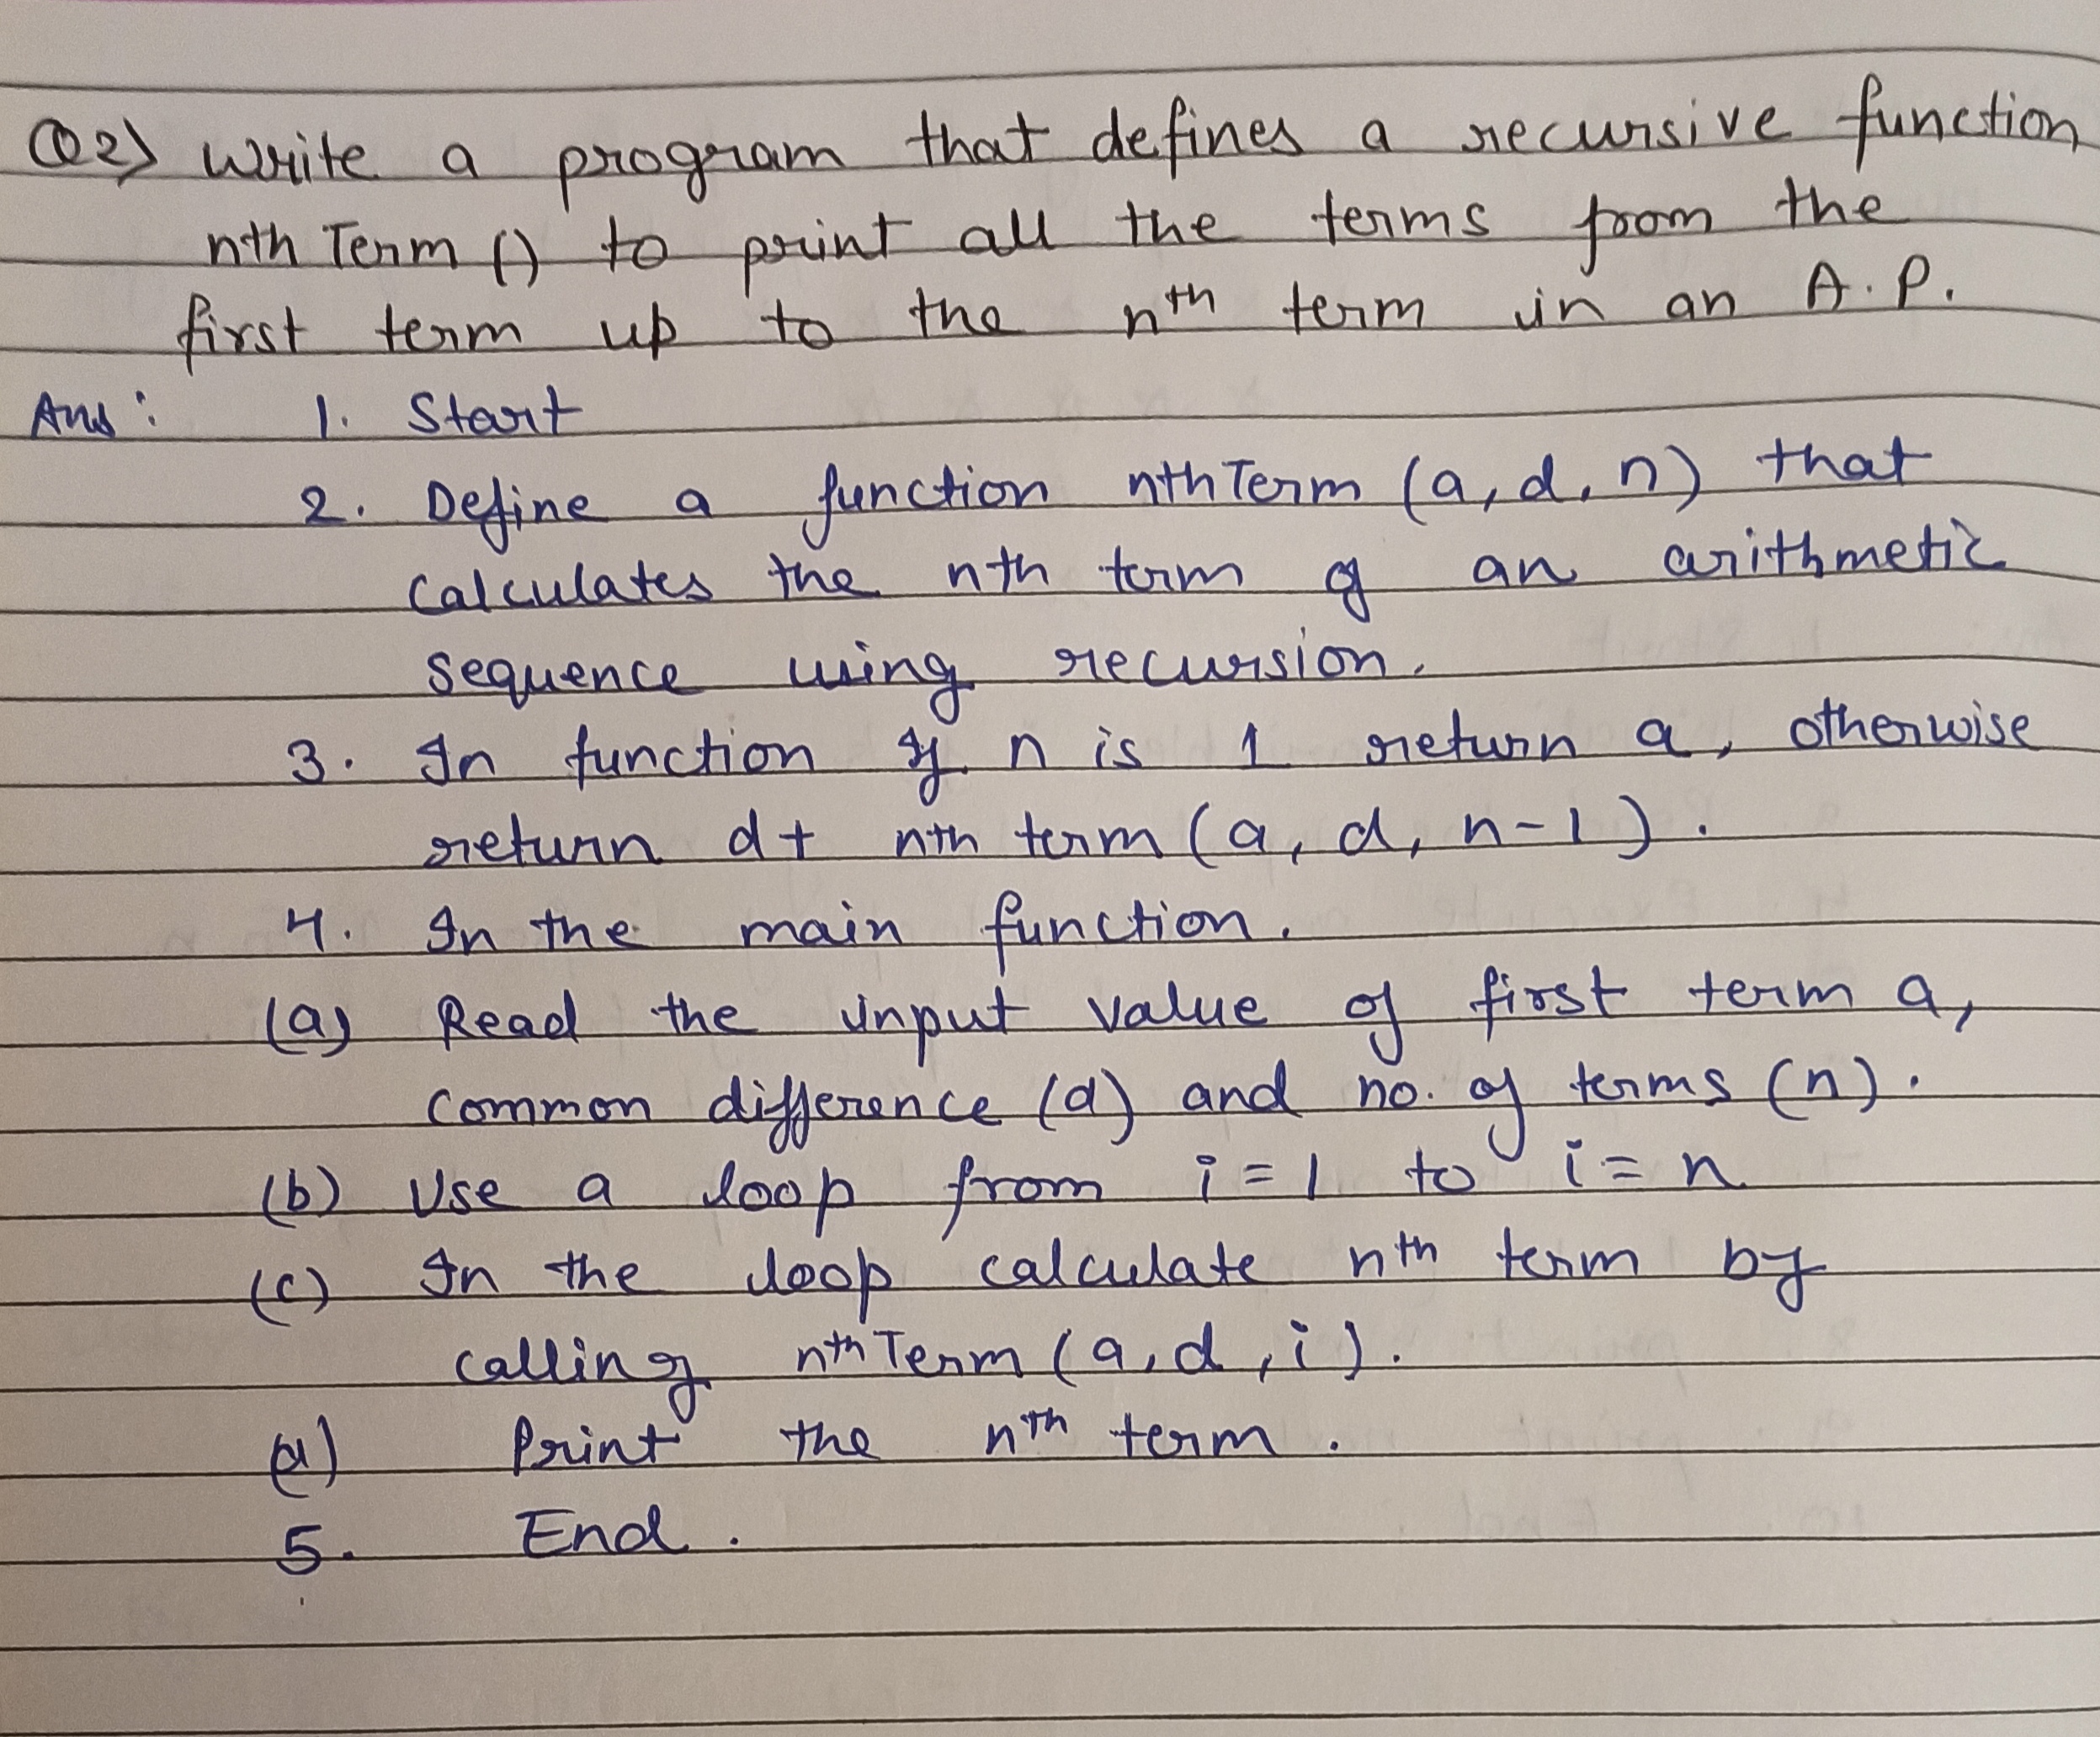 Q2) Write a program that defines a recursive function
nth Term () to print all the terms from the
first term up to the nth term in an A.P.
Ans: 1. Start
2. Define a function nthTerm (a, d, n) that
calculates the nth term of an arithmetic
sequence using recursion.
3. In function if n is 1 return a, otherwise
return d+ nth term (a, d, n-1).
4. In the main function.
(a) Read the input value of first term a,
common difference (d) and no. of terms (n).
(b) Use a loop from i=1 to i=n
(c) In the loop calculate nth term by
calling nthTerm (a, d, i).
(d) Print the nth term.
5. End.